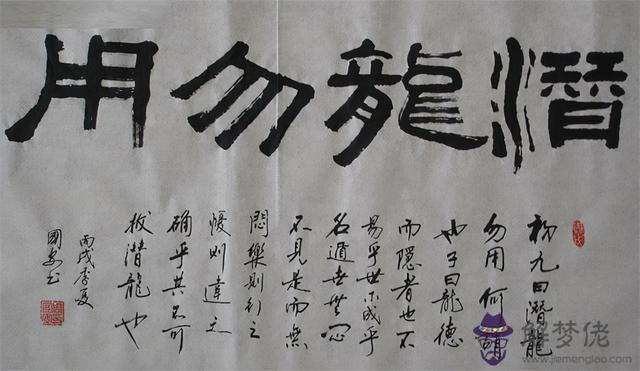 潛龍勿用
初九曰潛龍
勿用何謂
也子曰龍德
而隱者也不
易乎世不成乎
名遁世無悶
不見是而無
悶樂則行之
憂則違之
确乎其不可
拔潛龍也
丙戌季夏
國安书
解梦佬
www.jiemenglao.com